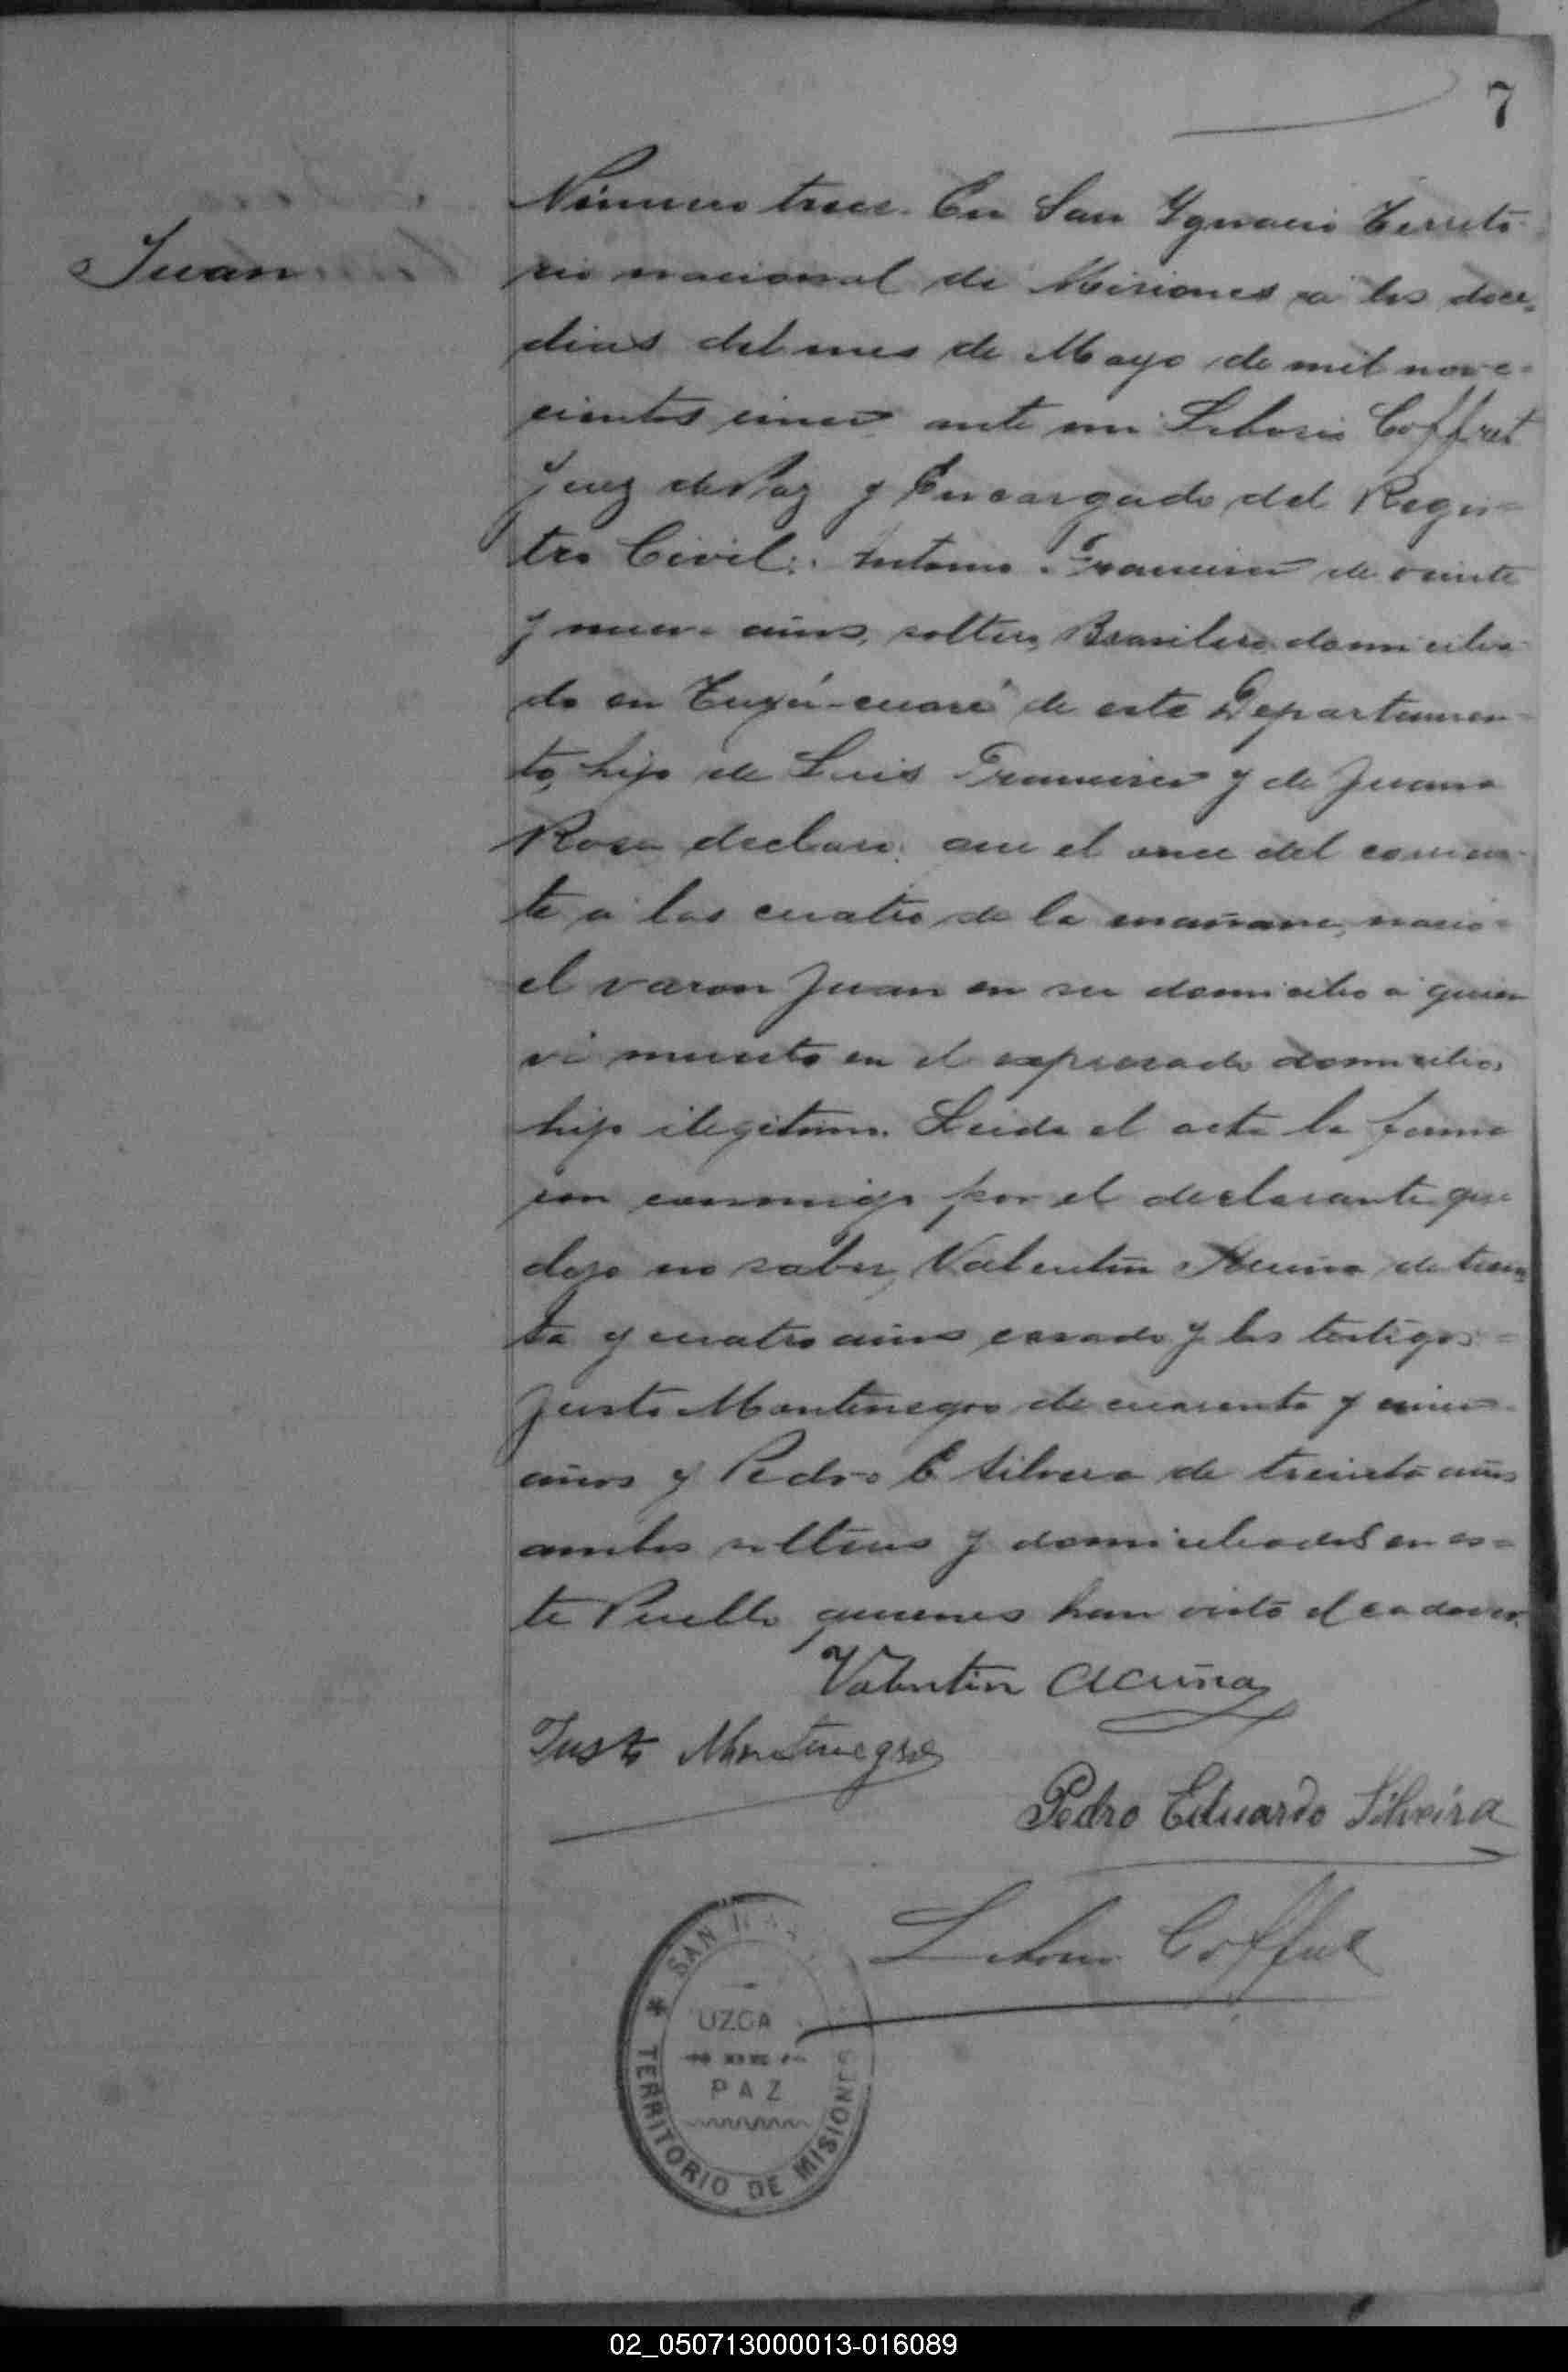 7
Juan
Número trece. En San Ygnacio Territo-
rio nacional de Misiones á los doce
dias del mes de Mayo de mil nove-
cientos cinco ante mi Liborio Coffret
Juez de Paz y Encargado del Regis-
tro Civil: Antonio Francisco de veinte
y nueve años, soltero, Brasilero domicilia-
do en Tuyú-cuaré de este Departamen-
to, hijo de Luis Francisco y de Juana
Rosa declaró: que el once del corrien-
te á las cuatro de la mañana, nació
el varon Juan en su domicilio á quien
ví muerto en el expresado domicilio,
hijo ilegitimo. Leida el acta la firma
ron conmigo por el declarante que
dijo no saber, Valentin Acuña de trein
ta y cuatro años casado y los testigos
Justo Montenegro de cuarenta y cinco
años y Pedro E Silvera de treinta años
ambos solteros y domiciliados en es-
te Pueblo quienes han visto el cadaver.
Valentin Acuña
Justo Montenegro
Pedro Eduardo Silveira
Liborio Coffret
SAN
UZGA
PAZ
TERRITORIO DE MISIONES
02_050713000013-016089